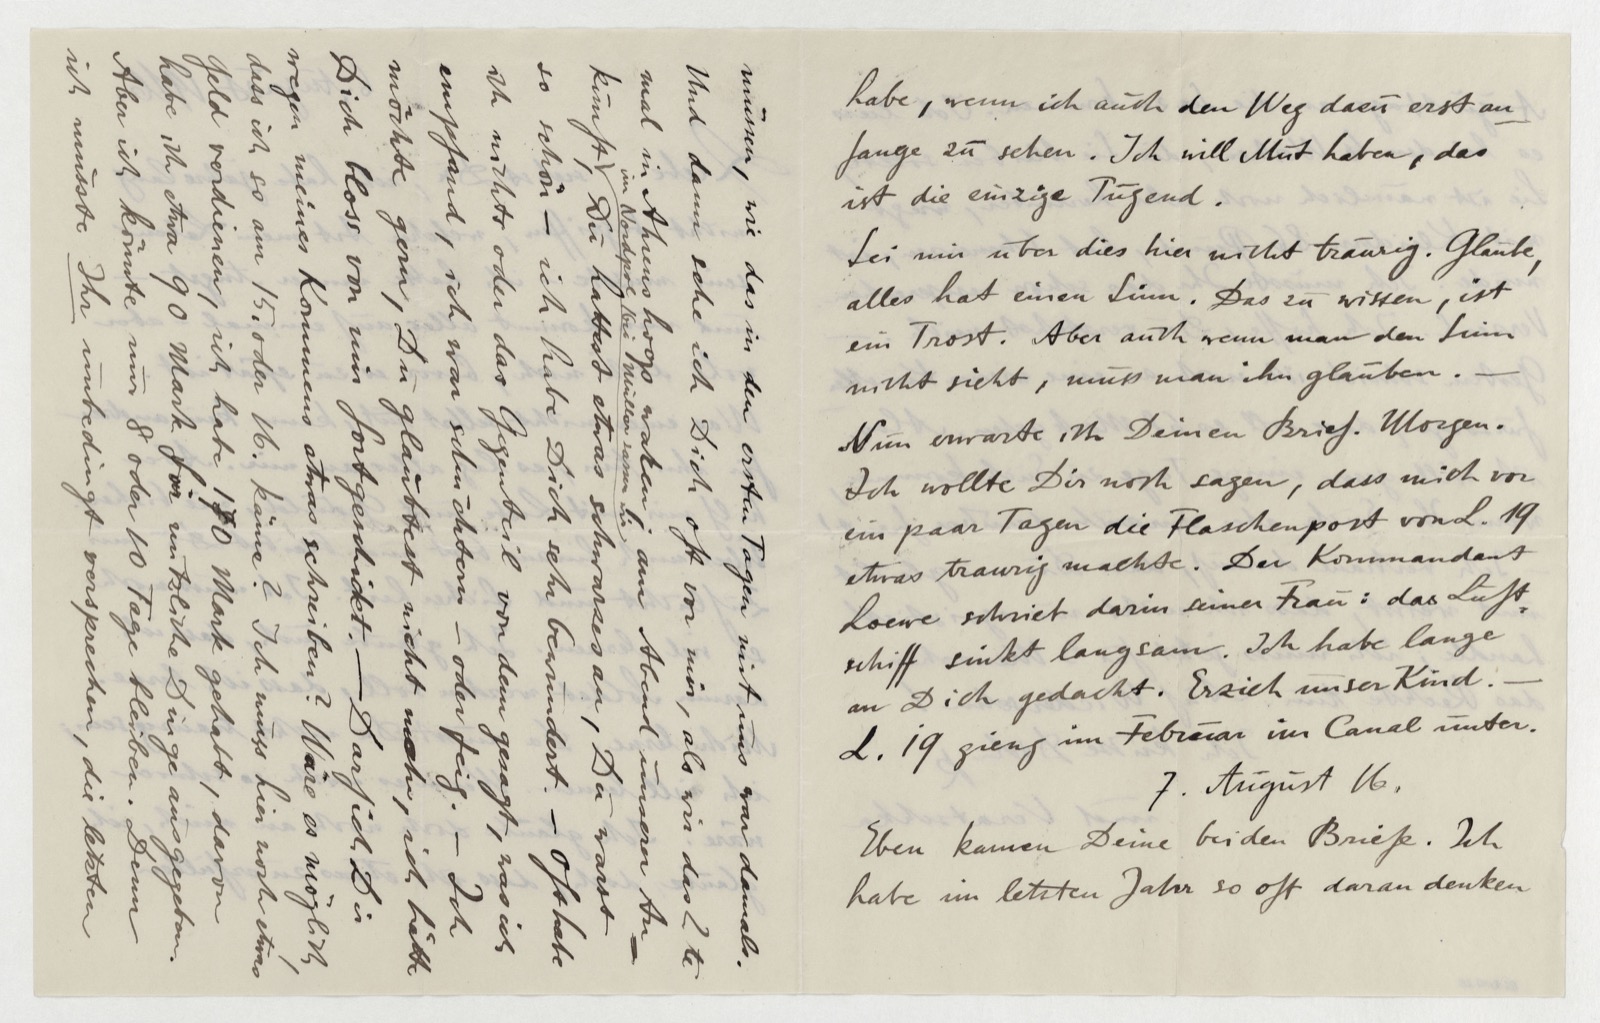 habe, wenn ich auch den Weg dazu erst an-
fange zu sehen. Ich will Mut haben, das
ist die einzige Tugend.
Sei mir über dies hier nicht traurig. Glaube,
alles hat einen Sinn. Das zu wissen, ist
ein Trost. Aber auch wenn man den Sinn
nicht sieht, muss man ihn glauben. —
Nun erwarte ich Deinen Brief. Morgen.
Ich wollte Dir noch sagen, dass mich vor
ein paar Tagen die Flaschenpost von L. 19
etwas traurig machte. Der Kommandant
Loewe schrieb darin seiner Frau: das Luft-
schiff sinkt langsam. Ich habe lange
an Dich gedacht. Erzieh unser Kind. —
L. 19 gieng im Februar im Canal unter.
7. August 16.
Eben kamen Deine beiden Briefe. Ich
habe im letzten Jahr so oft daran denken
müssen, wie das in den ersten Tagen mit uns war damals.
Und dann sehe ich Dich oft vor mir, als wir das 2te
mal in Ahrenshoop waren (am Abend unserer An-
im Nordpol bei
kunft), Du hattest etwas schwarzes an, Du warst
so schön — ich habe Dich sehr bewundert. — Oft habe
ich nichts oder das Gegenteil von dem gesagt, was ich
empfand, ich war schüchtern — oder feig. — Ich
möchte gern, Du glaubtest nicht mehr, ich hätte
Dich bloss von mir fortgeschickt. — Darf ich Dir
wegen meines Kommens etwas schreiben? Wäre es möglich,
dass ich so am 15. oder 16. käme? Ich muss hier noch etwas
Geld verdienen, ich habe Mark gehabt, davon
habe ich etwa 90 Mark für nützliche Dinge ausgegeben.
Aber ich könnte nur 8 oder 10 Tage bleiben. Denn
ich müsste Ihr unbedingt versprechen, die letzten